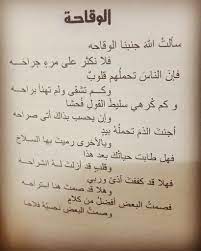 الوقاحة
سألتُ اللهَ جنبنا الوقاحه
فلا نكثر على مرءٍ جراحه
فإنّ الناسَ تحملُهم قلوبٌ
وكم تشقى ولم تهنأ براحه
وكم كُرهي سليطَ القولِ فحشا
وإن يحسب بذاك أتى صراحه
أجنتَ الذم تحملهُ بيدٍ
وبالأخرى رميتَ بها السلاح
فهل طابت حياتُك بعد هذا
وقلبٍ قد أزلتَ لهُ انشراحه
فهلا قد كففتَ أذىً وربي
وهلا قد صمتَ هنا استراحه
فصمتُ البعضِ أفضلُ من كلامٍ
وصمتُ البعضِ نحسبهُ فلاحا